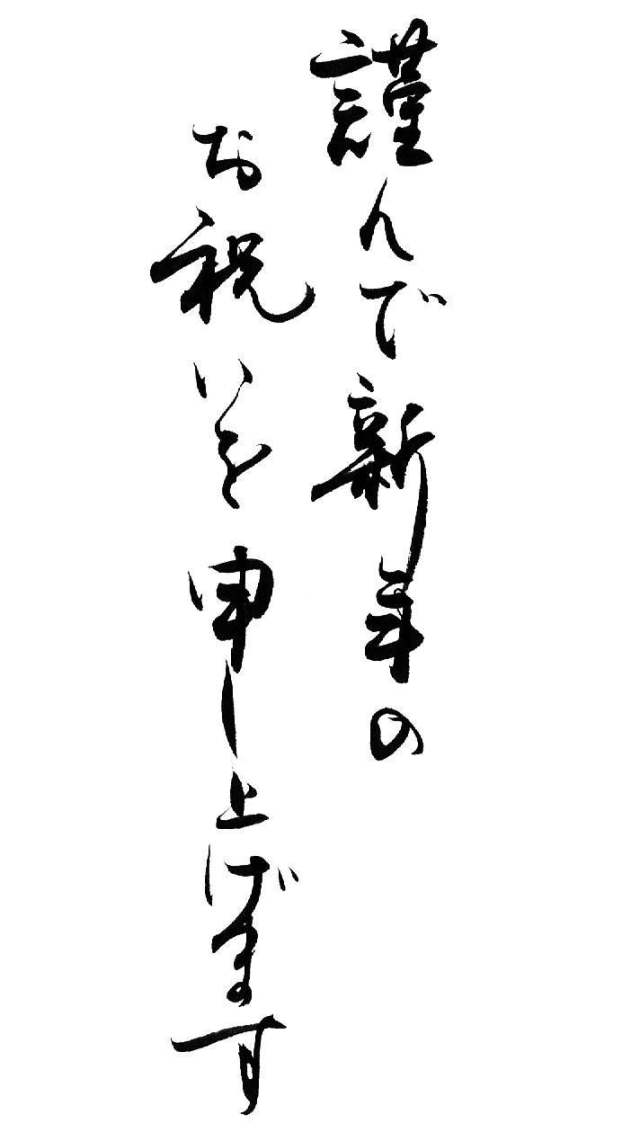 謹んで新年の
お祝いを申し上げます